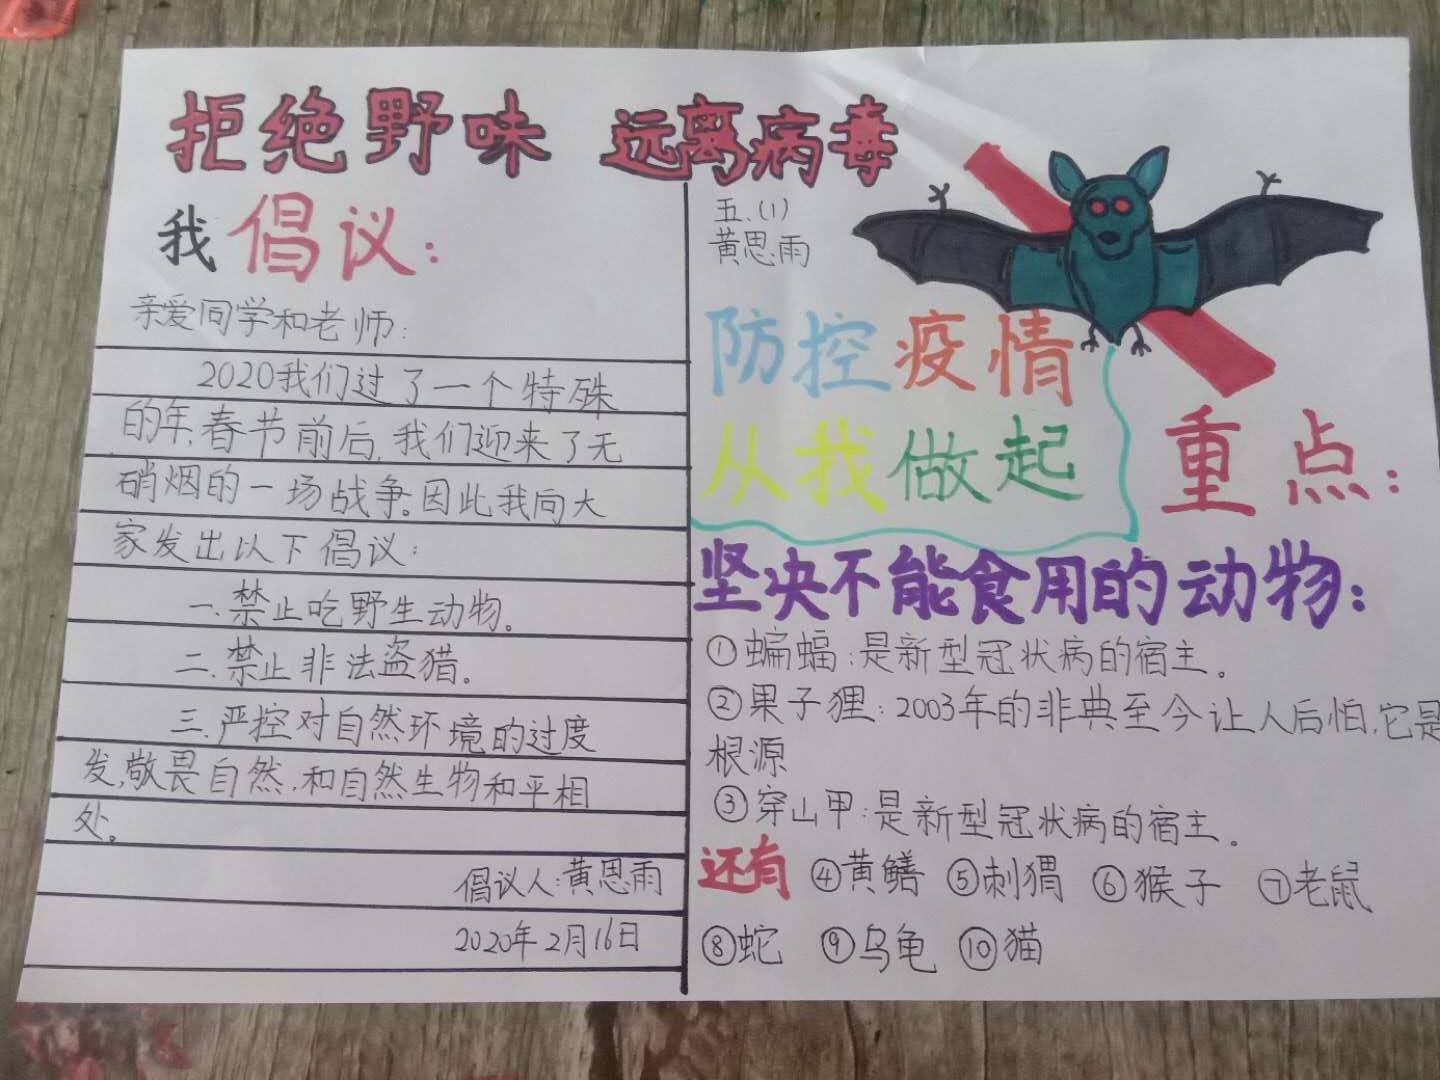 拒绝野味 远离病毒
我倡议:
亲爱同学和老师:
2020我们过了一个特殊
的年,春节前后,我们迎来了无
硝烟的一场战争。因此我向大
家发出以下倡议:
一.禁止吃野生动物。
二.禁止非法盗猎。
三.严控对自然环境的过度
发,敬畏自然,和自然生物和平相
处。
倡议人:黄思雨
2020年2月16日
五.(1)
黄思雨
防控疫情
从我做起
重点:
坚决不能食用的动物:
①蝙蝠:是新型冠状病的宿主。
②果子狸:2003年的非典至今让人后怕,它是
根源
③穿山甲:是新型冠状病的宿主。
还有 ④黄鳝 ⑤刺猬 ⑥猴子 ⑦老鼠
⑧蛇 ⑨乌龟 ⑩猫